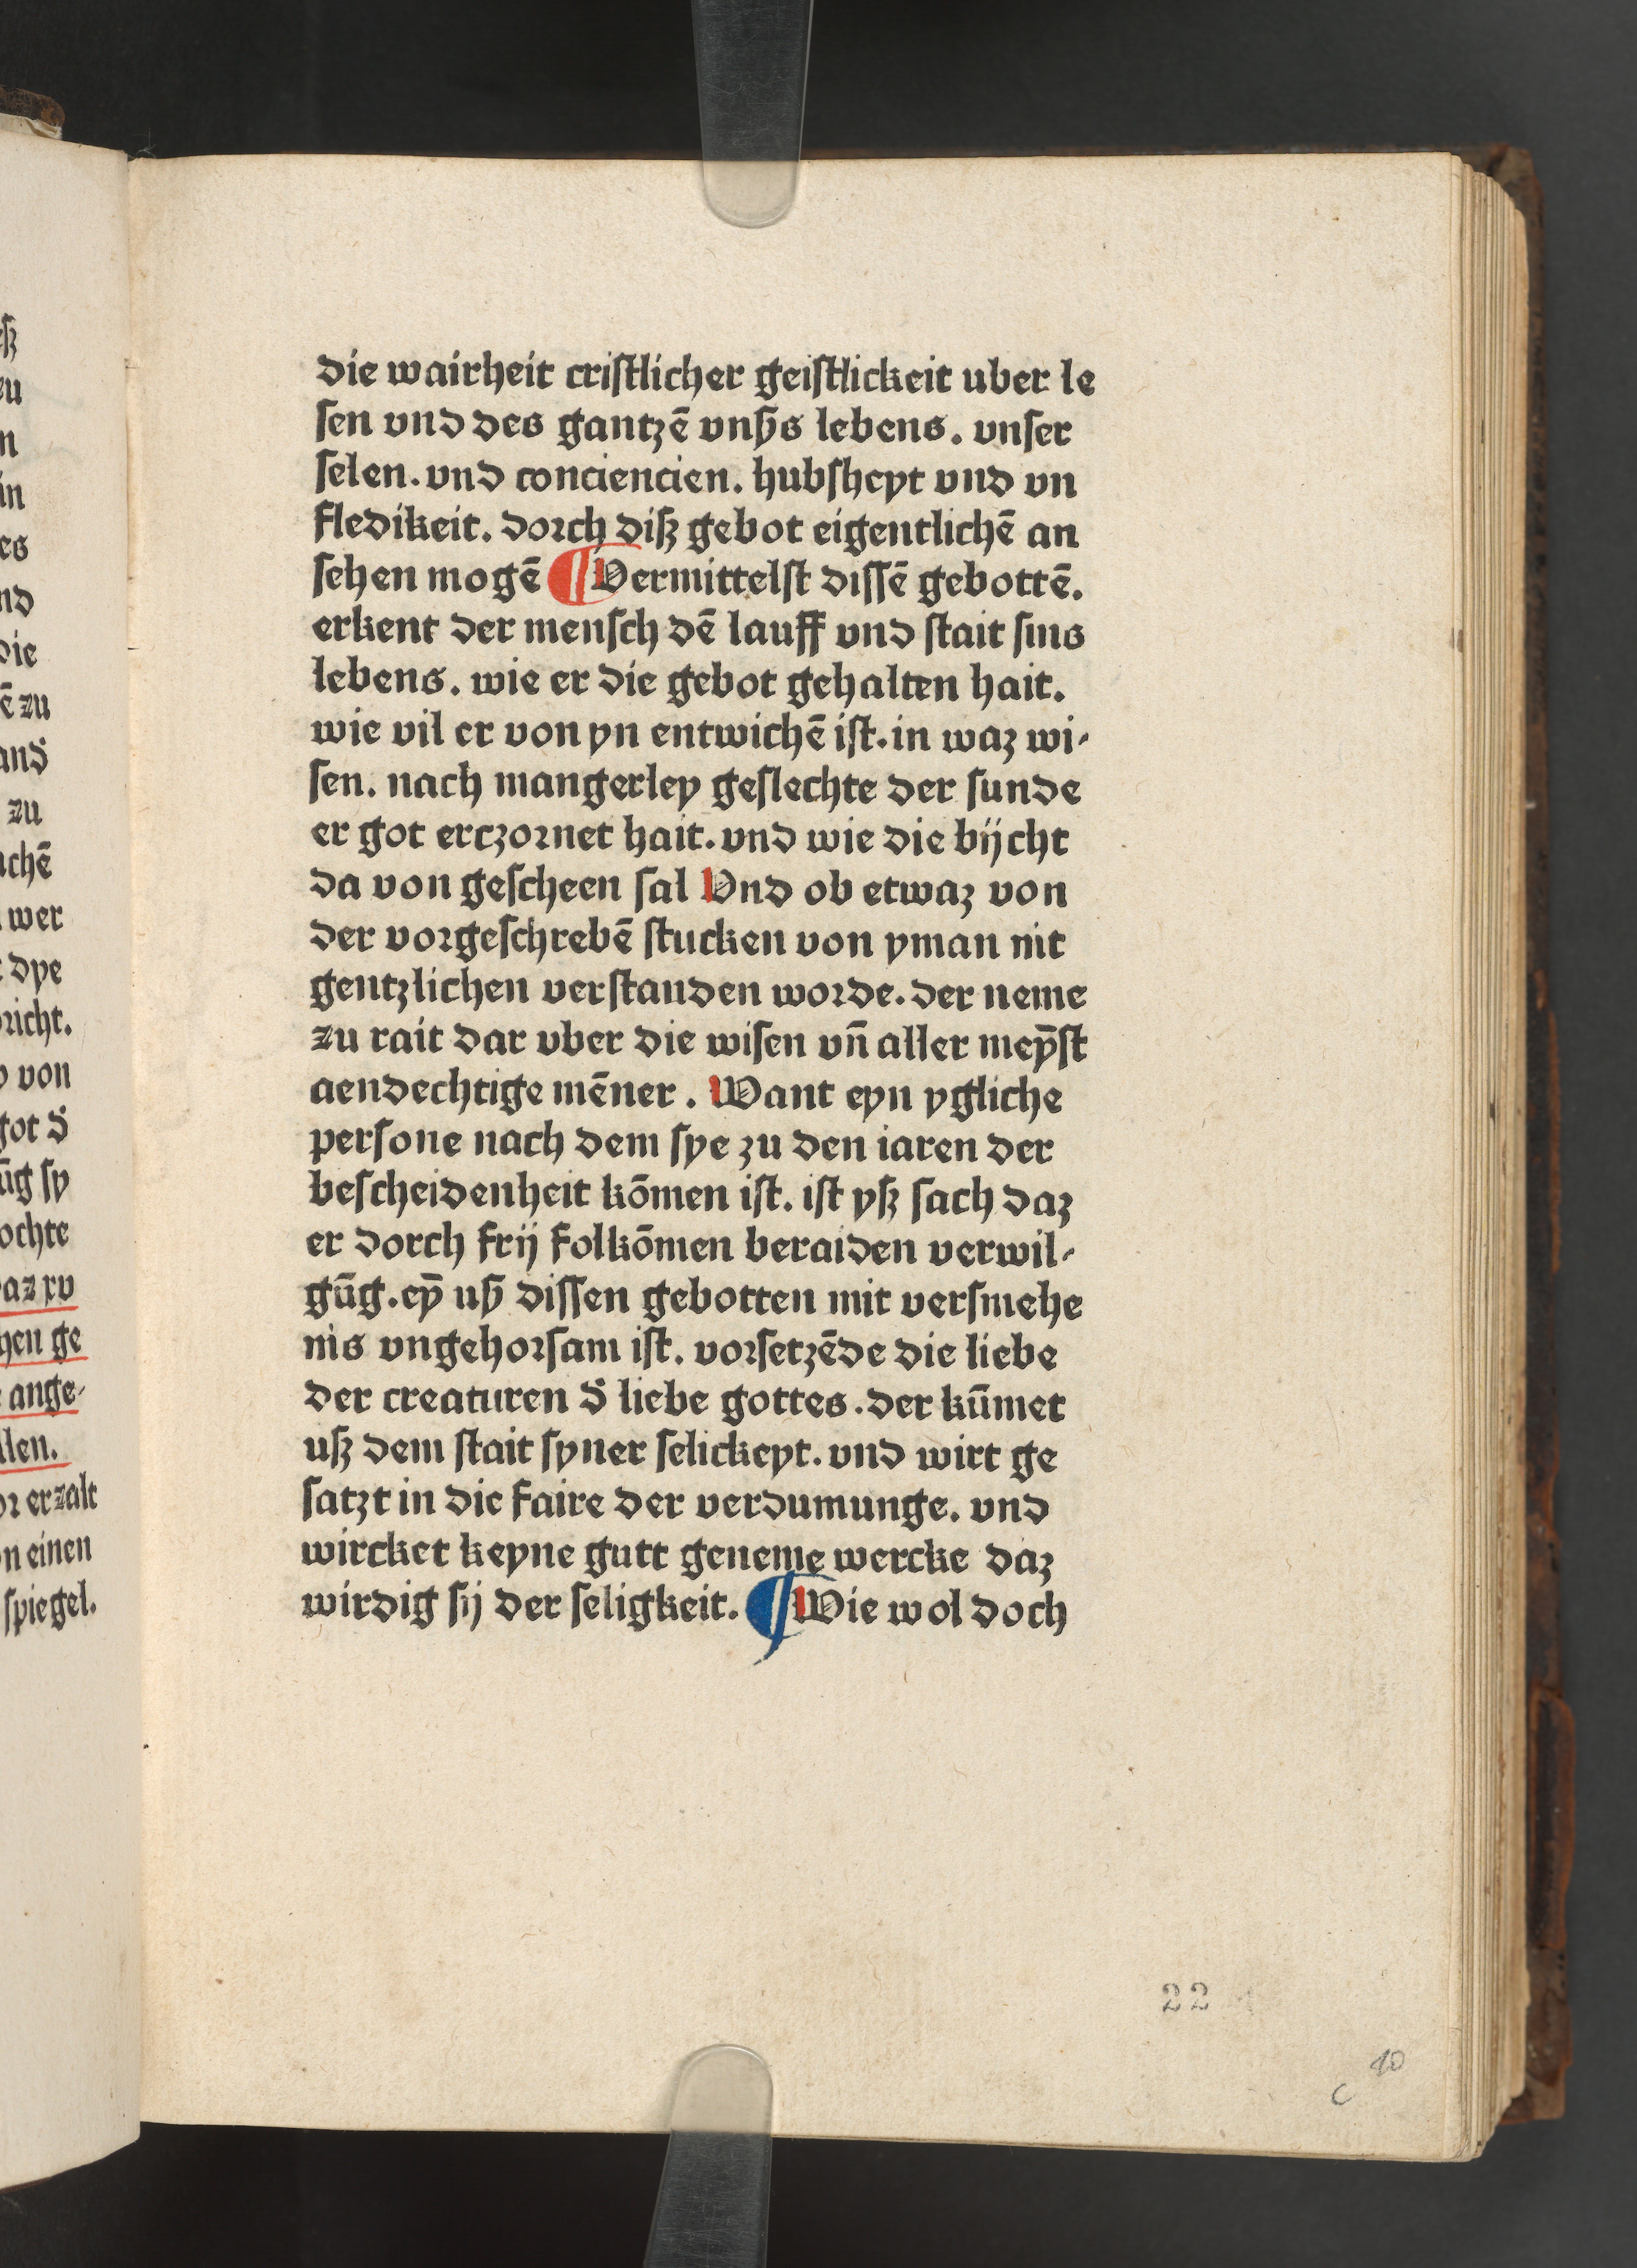 die wairheit criſtlicher geiſtlickeit uber le
ſen vnd des gantzē vnſ̄s lebens. vnſer
ſelen. vnd conciencien. hubſheyt vnd vn
fledikeit. dorch diſz gebot eigentlichē an
ſehen mogē ¶ Vermittelſt diſſē gebottē.
erkent der menſch dē lauff vnd ſtait ſins
lebens. wie er die gebot gehalten hait.
wie vil er von yn entwichē iſt. in waz wi-
ſen. nach mangerley geſlechte der ſunde
er got erczornet hait. vnd wie die bijcht
da von geſcheen ſal Vnd ob etwaz von
der vorgeſchrebē ſtucken von yman nit
gentzlichen verſtanden worde. der neme
zu rait dar vber die wiſen vn̄ aller meyſ̄t
aendechtige mēner. Want eyn ygliche
perſone nach dem ſye zu den iaren der
beſcheidenheit kōmen iſt. iſt yſz ſach daz
er dorch frij folkōmen beraiden verwil-
gūg. eyn̄ uſz diſſen gebotten mit verſmehe
nis vngehorſam iſt. vorſetzēde die liebe
der creaturen d̄ liebe gottes. der kūmet
uſz dem ſtait ſyner ſelickeyt. vnd wirt ge
ſatzt in die faire der verdumunge. vnd
wircket keyne gutt geneme wercke daz
wirdig ſij der ſeligkeit. ¶ Wie wol doch
22
10
c
ē zu
and̄
zu
achē
wer
dye
richt.
von
got d̄
ūg ſy
ochte
az xv
hen ge
ange-
llen.
or erzalt
n einen
ſpiegel.